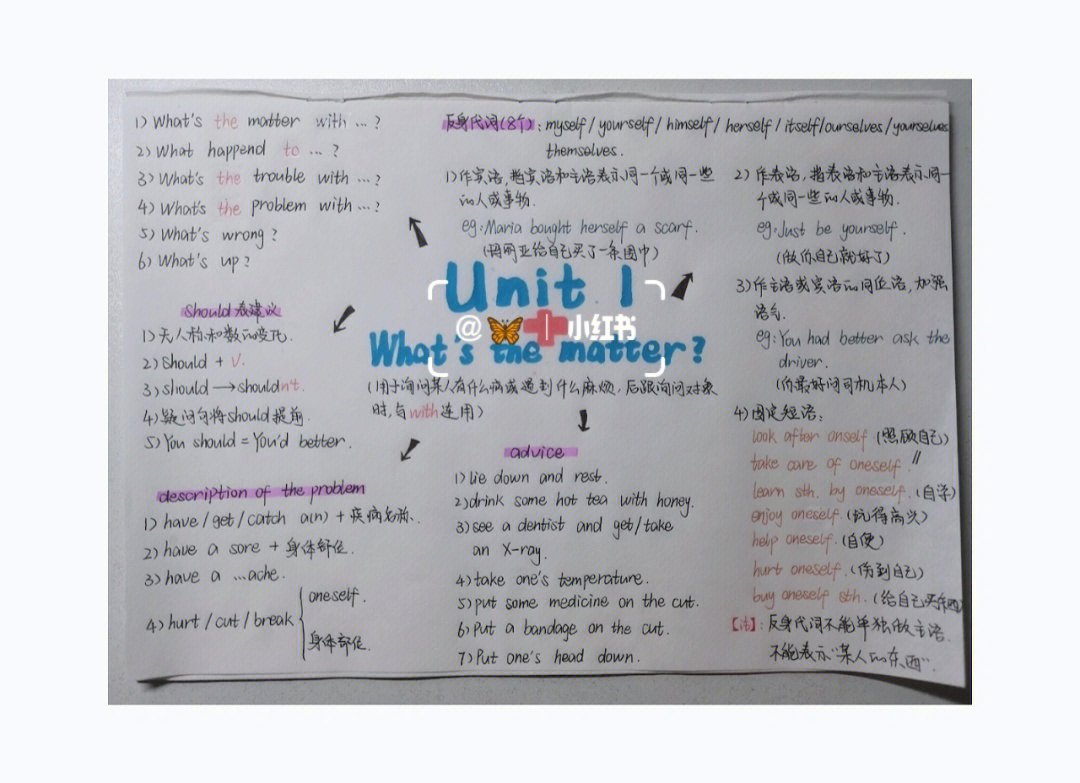 1) What's the matter with ...?
2) What happend to ...?
3) What's the trouble with ...?
4) What's the problem with ...?
5) What's wrong?
6) What's up?
反身代词(8个): myself/yourself/himself/herself/itself/ourselves/yourselves
themselves.
1)作宾语,指宾语和主语表示同一个或同一些
的人或事物.
eg: Maria bought herself a scarf.
(玛丽亚给自己买了一条围巾)
2) 作表语,指表语和主语表示同一
个或同一些的人或事物.
eg: Just be yourself.
(做你自己就好了)
3)作主语或宾语的同位语,加强
语气.
eg: You had better ask the
driver.
(你最好问司机本人)
4)固定短语:
look after onself (照顾自己)
take care of oneself.
learn sth. by oneself. (自学)
enjoy oneself. (玩得高兴)
help oneself. (自便)
hurt oneself. (伤到自己)
buy oneself sth. (给自己买东西)
【注】: 反身代词不能单独做主语.
不能表示"某人的东西".
Unit 1
@🦋 | 小红书
What's the matter?
(用于询问某人有什么病或遇到什么麻烦,后跟询问对象
时,与with连用)
should表建议
1)无人称和数的变化.
2) should + V.
3) should → shouldn't.
4)疑问句将should提前.
5) You should = You'd better.
description of the problem
1) have/get/catch a(n) + 疾病名称.
2) have a sore + 身体部位.
3) have a ...ache.
4) hurt/cut/break
oneself.
身体部位.
advice
1) lie down and rest.
2) drink some hot tea with honey.
3) see a dentist and get/take
an X-ray.
4) take one's temperature.
5) put some medicine on the cut.
6) Put a bandage on the cut.
7) Put one's head down.